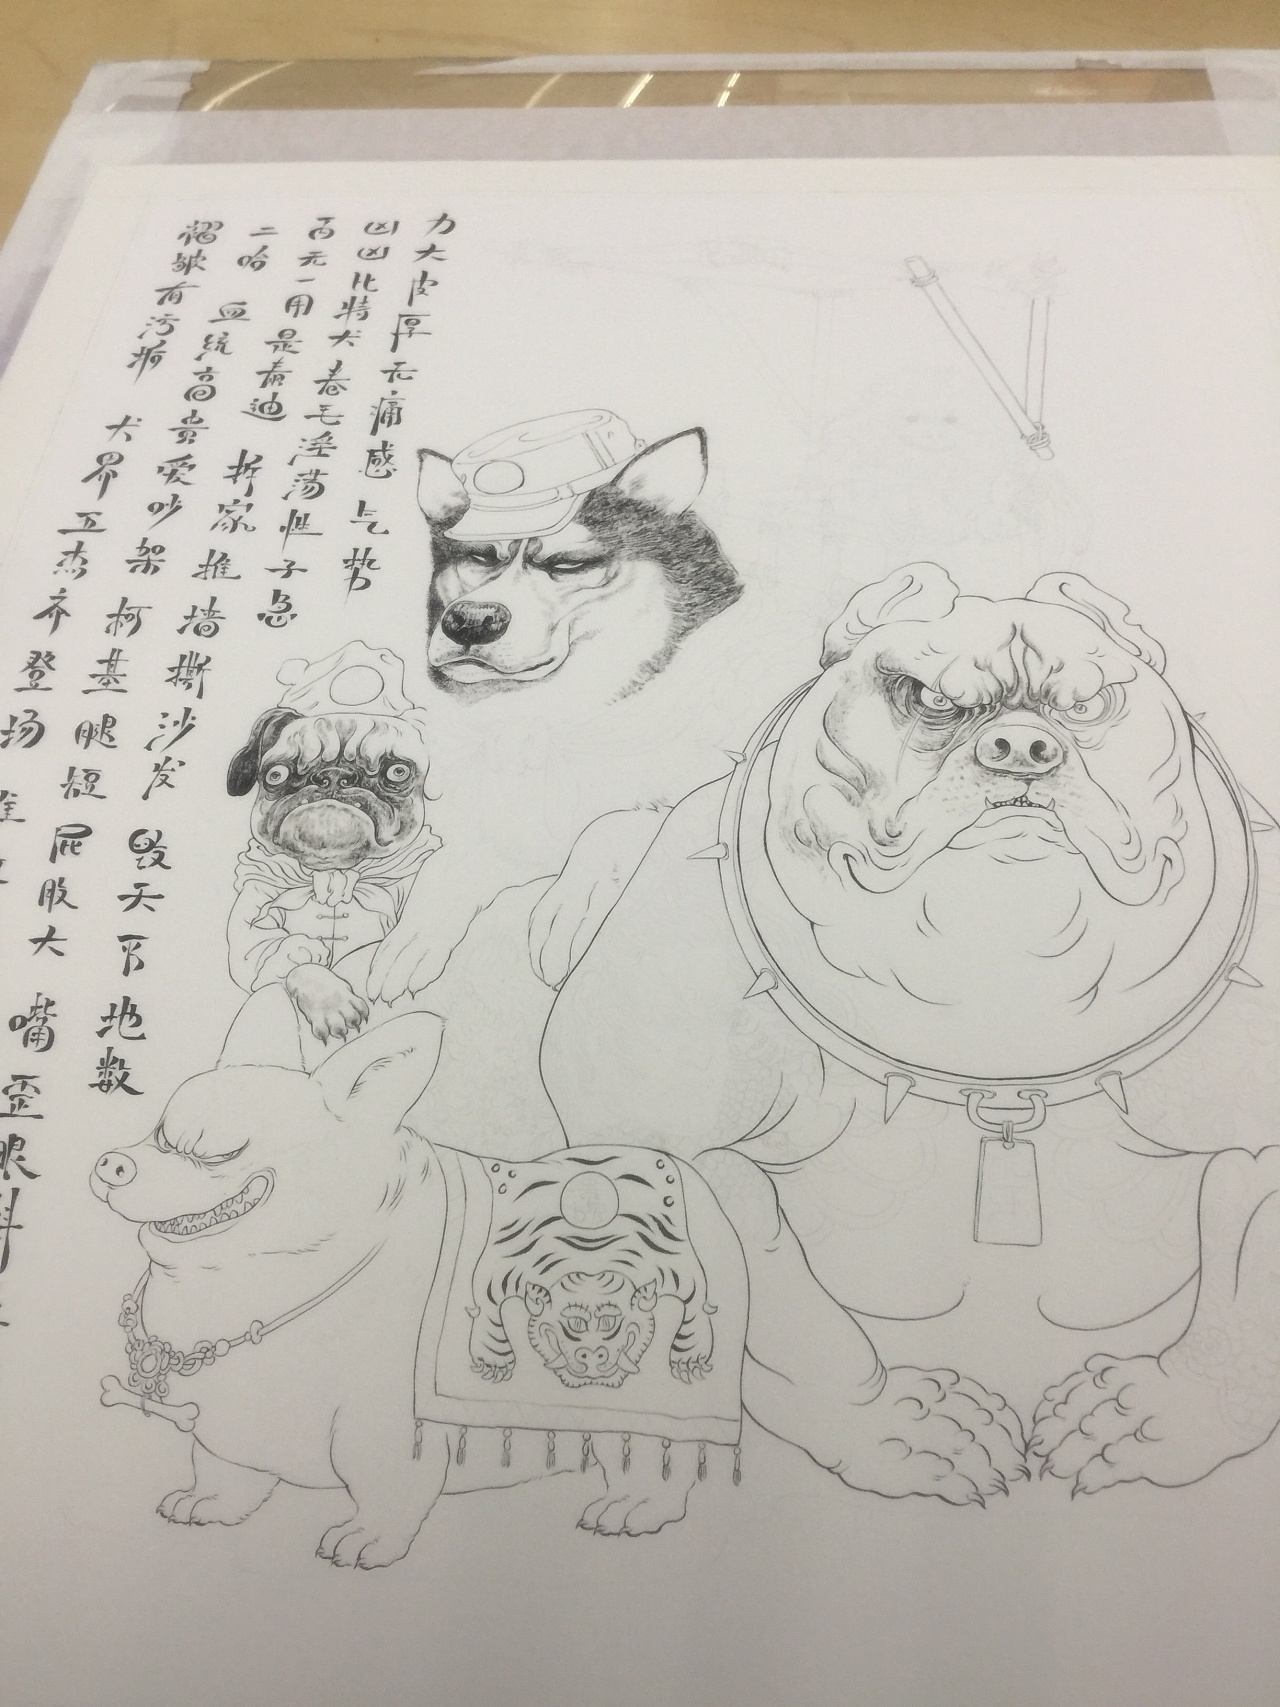 力大皮厚无痛感 气势
凶凶比特犬 卷毛淫荡性子急
百无一用是泰迪 拆家推墙撕沙发 毁天灭地数
二哈 血统高贵爱吵架 柯基腿短屁股大 嘴歪眼斜
褶皱有污垢 犬界五杰齐登场